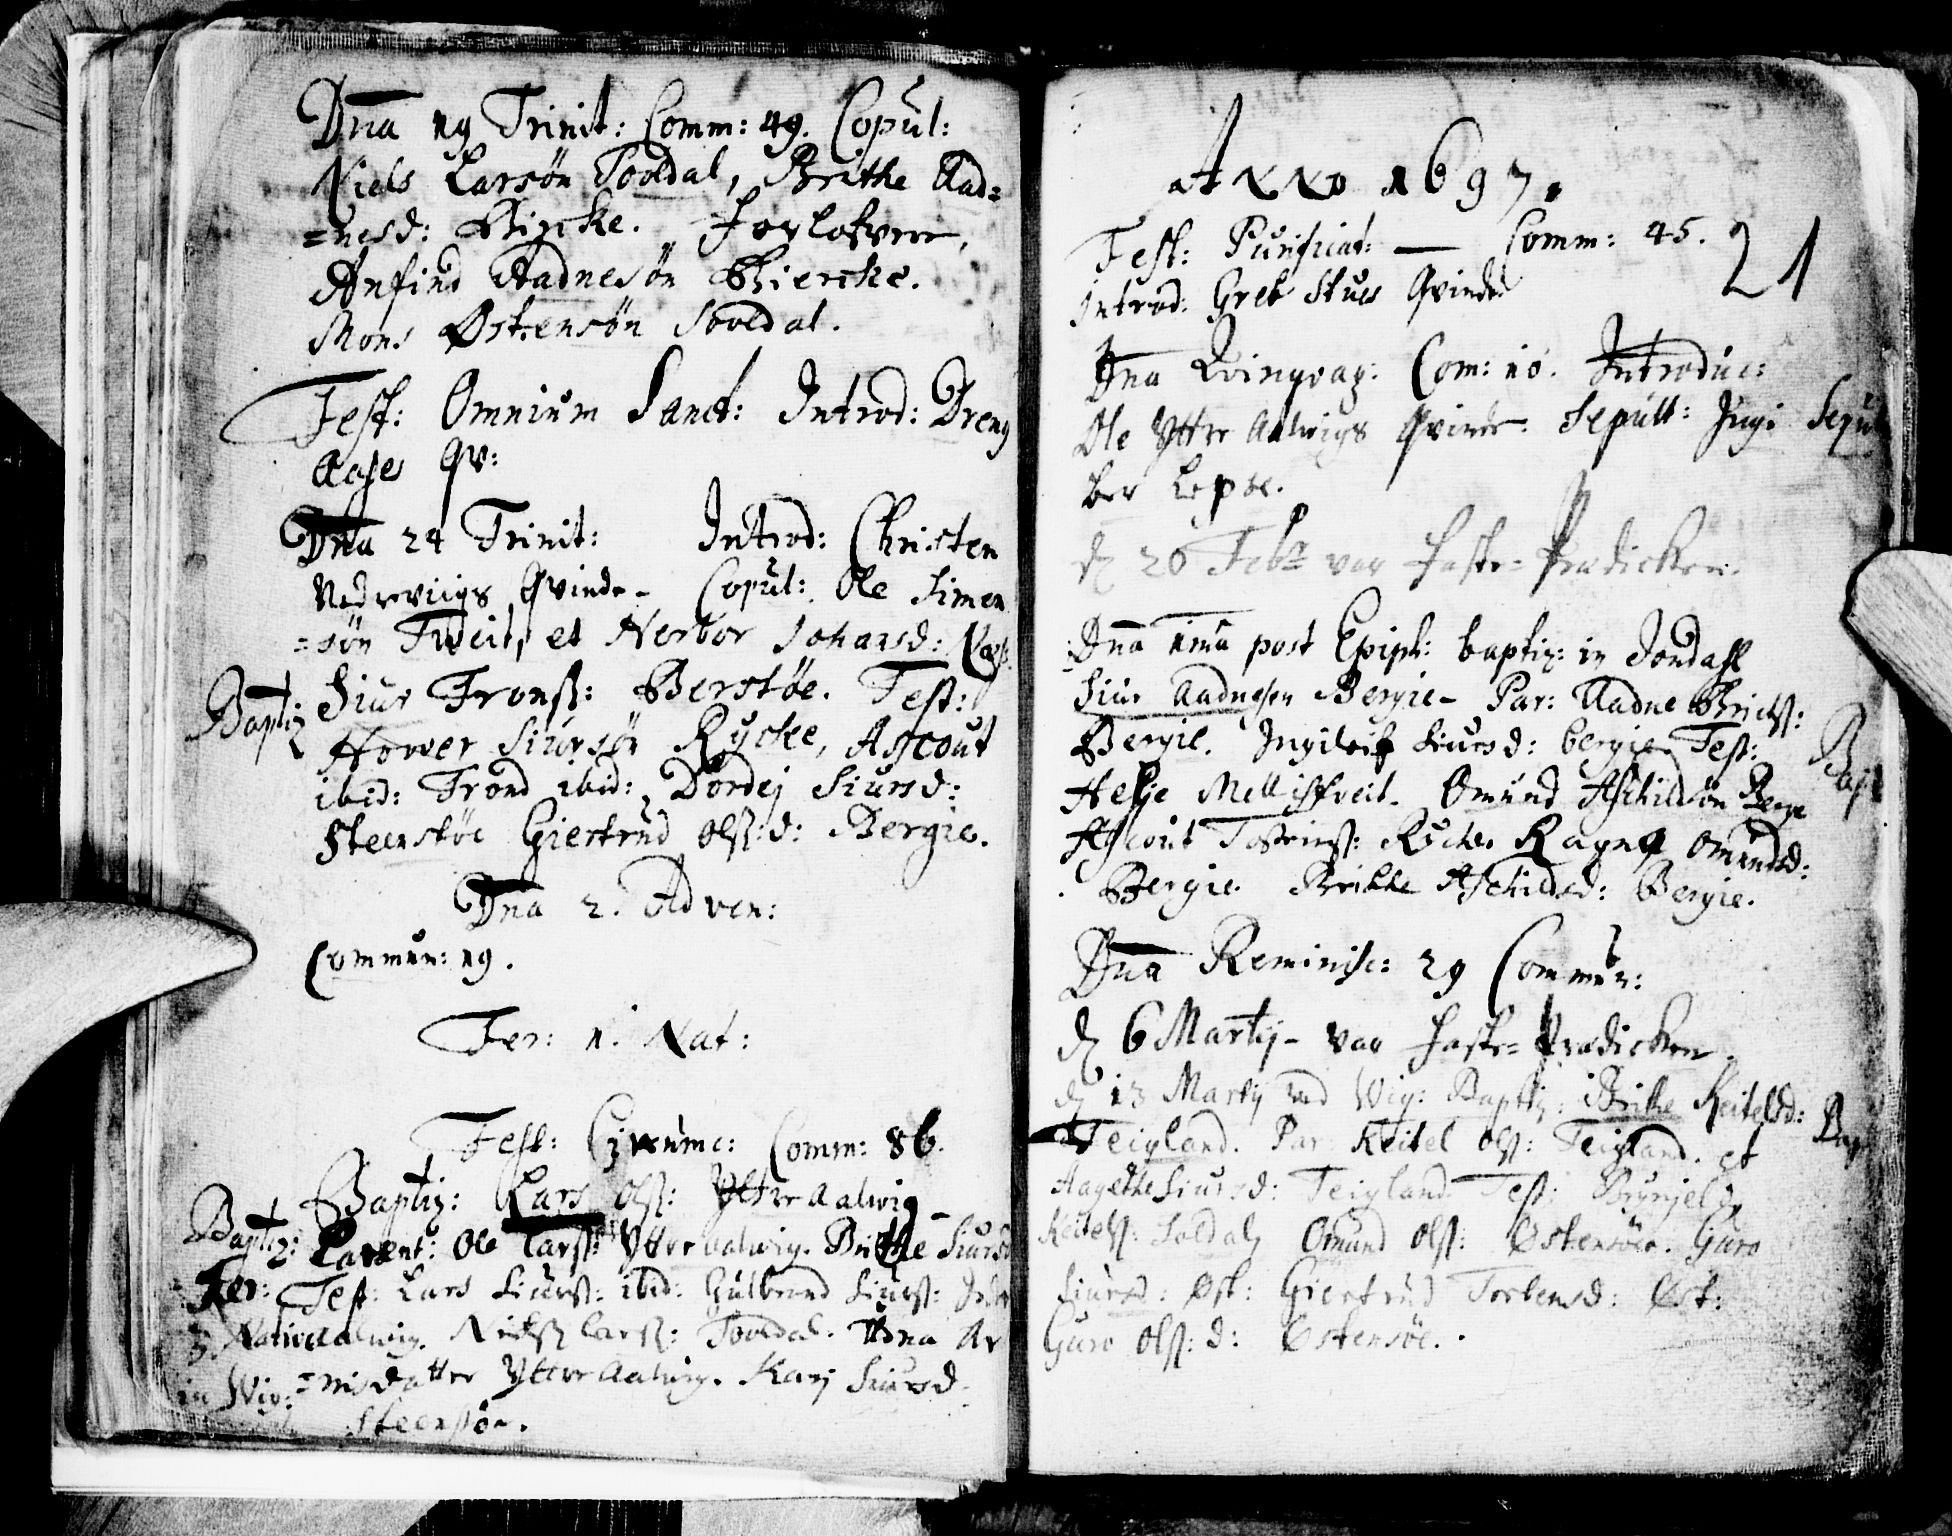 Dna 19 Trinit: Comm: 49. Copul:
Niels Larsøn Soeldal, Brithe Aad=
=nesd: Birke. Forlofvere,
Anfind Aadnesøn Bierche.
Mons Østensøn Soeldal.
Fest: Omnium Sanct: Introd: Dreng
Aases Qv:
Dna 24 Trinit: Introd: Christen
Nedreviigs Qvinde - Copul: Ole Simen
=søn Tveit, et Nerbor Johansd:
Baptiz
Siur Tronß: Berstøe. Test:
Hower Siursøn Rycke, Ascout
ibid: Trond ibid: Dordej Siursd:
Steenstøe Giertrud Olß:d: Bergie.
Dna 2. Adven:
Commun: 19.
Fer: 1. Nat:
Fest: Circumc: Comm: 86.
Baptiz: Lars Olß: Yttre Aalwig -
Baptiz: Parent: Ole Larß: Yttre aalwig. Brithe Siursd
Fer: Test: Lars Siurß: ibid: Gulbrand Siurß:
3. Nativ aalwig. Nielß larß: Soeldal. Anna Ar
in Wiv: =nisdatter Yttre Aalwig. Kari Siursd
Steensøe.
Anno 1697.
21
Fest: Purificat: — Comm: 45.
Introd: Greb Stues Qvinde
Dna Qvinqvag: Com: 10. Introduc:
Ole Yttre Aalwigs Qvinde. Sepult: Ingi Sepul
ber Lepsøe.
d 26 Febr var Faste=Prædicken.
Dna 1ma post Epiph: baptiz: in Jondahl
Siur Aadnesøn Bergie - Par: Aadne
Bergie. Ingileif Siursd: bergie Test: Bapt
Helje Mellisfveit. Omund Aschildsøn Berge
Ascout Tosteinß: Ragna Omundsd:
Bergie. Brithe Aschildsd: Bergie.
Dna Reminisc: 29 Commun:
d 6 Martij - var Faste=Prædicken.
d 13 Martij ved Wig: Baptiz: Brithe Keitelsd: Bap
Teigland. Par Keitel Olß: Teigland. et
Aagethe Siursd: Teigland Test: Brynjeld
Keitelß: Soldal, Omund Olß: Østensøe. Guro
Siursd: Øst: Giertrud Torbensd: Øst:
Guro Olß:d: Østensøe.